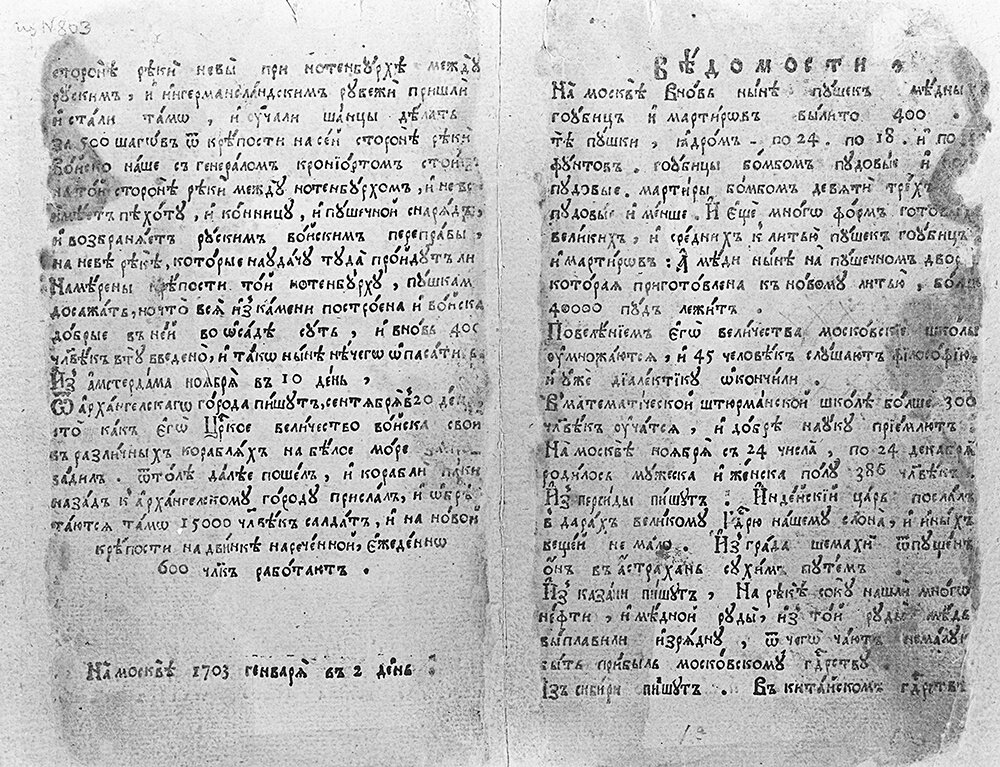 из N 803
сторонѣ рѣки невы̀ при нотенбꙋ́рхѣ междꙋ̀
рꙋ́скимъ, и҆ и҆нгерманла́ндскимъ рꙋбежѝ пришлѝ
и҆ ста́ли та́мѡ, и҆ ᲂу҆ча́ли ша́нцы дѣ́лать
за 500 шагѡ́въ ѿ крѣ́пости на се́й сторонѣ̀ рѣкѝ
во́йско на́ше съ генера́ломъ кроніо́ртомъ стои́тъ
на то́й сторонѣ̀ рѣкѝ междꙋ̀ нотенбꙋ́рхомъ, и҆ не
и҆мѣ́етъ пѣхо́тꙋ, и҆ ко́нницꙋ, и҆ пꙋ́шечной снарѧ́дъ,
и҆ возбранѧ́етъ рꙋ́скимъ во́йскимъ перепра́вы,
на невѣ̀ рѣкѣ̀, кото́рые наꙋда́чꙋ тꙋда̀ про́йдꙋтъ ли
Намѣ́рены крѣ́пости то́й нотенбꙋ́рхꙋ, пꙋ́шкамъ
досажа́ть, но что̀ всѧ̀ и҆зъ ка́мени постро́ена и҆ во́йска
до́брые въ не́й во ѡ҆са́дѣ сꙋ́ть, и҆ вно́вь 400
члв҃ѣкъ в тꙋ̀ введено̀, и҆ та́кѡ ны́нѣ не́чегѡ ѡ҆паса́ти
И҆зъ а҆мстерда́ма ноѧбрѧ̀ въ 10 де́нь,
Ѿ а҆рха́нгелскагѡ го́рода пи́шꙋтъ, сентѧбрѧ̀ въ 20 де́нь,
что̀ ка́къ є҆гѡ̀ Цр҃кое вели́чество во́йска своѝ
въ разли́чныхъ корабле́хъ на бѣ́лое мо́ре
зади́лъ. ѿто́лѣ да́лѣе поше́лъ, и҆ корабли паки
наза́дъ к̾ а҆рха́нгелскомꙋ го́родꙋ присла́лъ, и҆ ѡ҆брѣ-
та́ютсѧ та́мѡ 15000 члв҃ѣкъ салда́тъ, и҆ на но́вой
крѣ́пости на двинкѣ̀ нарече́нной, є҆жеде́ннѡ
600 члв҃къ рабо́таютъ.
На москвѣ̀ 1703 генварѧ̀ въ 2 де́нь:
Вѣ́домости,
На москвѣ̀ Вно́вь ны́нѣ пꙋ́шекъ мѣ́дныхъ
гоꙋ́бицъ и҆ мартирѡ́въ вы́лито 400.
тѣ̀ пꙋ́шки, ꙗ҆дро́мъ - по 24. по 18. и҆ по
фꙋ́нтовъ. гоꙋ́бицы бо́мбомъ пꙋдо́вые и҆
пꙋдо́вые. марти́ры бо́мбомъ девѧтѝ тре́хъ
пꙋдо́вые и҆ ме́нше. И҆ є҆щѐ мно́гѡ фо́рмъ гото́выхъ
вели́кихъ, и҆ сре́днихъ к̾ литью̀ пꙋ́шекъ гоꙋ́бицъ
и҆ мартирѡ́въ: А҆ мѣ́ди ны́нѣ на пꙋ́шечномъ дворѣ
кото́раѧ пригото́влена къ но́вомꙋ литью̀, бо́лше
40000 пꙋ́дъ лежи́тъ.
Повелѣ́нїемъ є҆гѡ̀ вели́чества моско́вскїе шко́лы
ᲂу҆множа́ютсѧ, и҆ 45 человѣ́къ слꙋ́шаютъ фїлосо́фїю
и҆ ᲂу҆жѐ дїале́ктїкꙋ ѡ҆ко́нчили.
В̾ математи́ческой штюрма́нской шко́лѣ бо́лше 300
члв҃ѣкъ ᲂу҆ча́тсѧ, и҆ до́брѣ наꙋ́кꙋ прїе́млютъ:
На москвѣ̀ ноѧбрѧ̀ съ 24 числа̀, по 24 декабрѧ̀
роди́лось мꙋ́жеска и҆ же́нска по́лꙋ 386 члв҃ѣкъ.
И҆зъ перси́ды пи́шꙋтъ. И҆нде́йскїй ца́рь посла́лъ
в̾ дара́хъ вели́комꙋ Гдⷭ҇рю на́шемꙋ слона̀, и҆ и҆ны́хъ
веще́й не ма́ло. И҆зъ гра́да шемахѝ ѿпꙋ́щенъ
ѻ҆́нъ въ а҆́страхань сꙋхи́мъ пꙋте́мъ.
И҆зъ каза́ни пи́шꙋтъ, На рѣкѣ̀ сокꙋ̀ нашлѝ мно́гѡ
не́фти, и҆ мѣ́дной рꙋды̀, и҆зъ то́й рꙋды̀ мѣ́дь
вы́плавили и҆зрѧ́днꙋ, ѿ чегѡ̀ ча́ютъ нема́лꙋю
бы́ть при́быль моско́вскомꙋ гдⷭ҇рствꙋ.
І҆зъ сиби́ри пи́шꙋтъ. Въ кита́йскомъ гдⷭ҇рствѣ